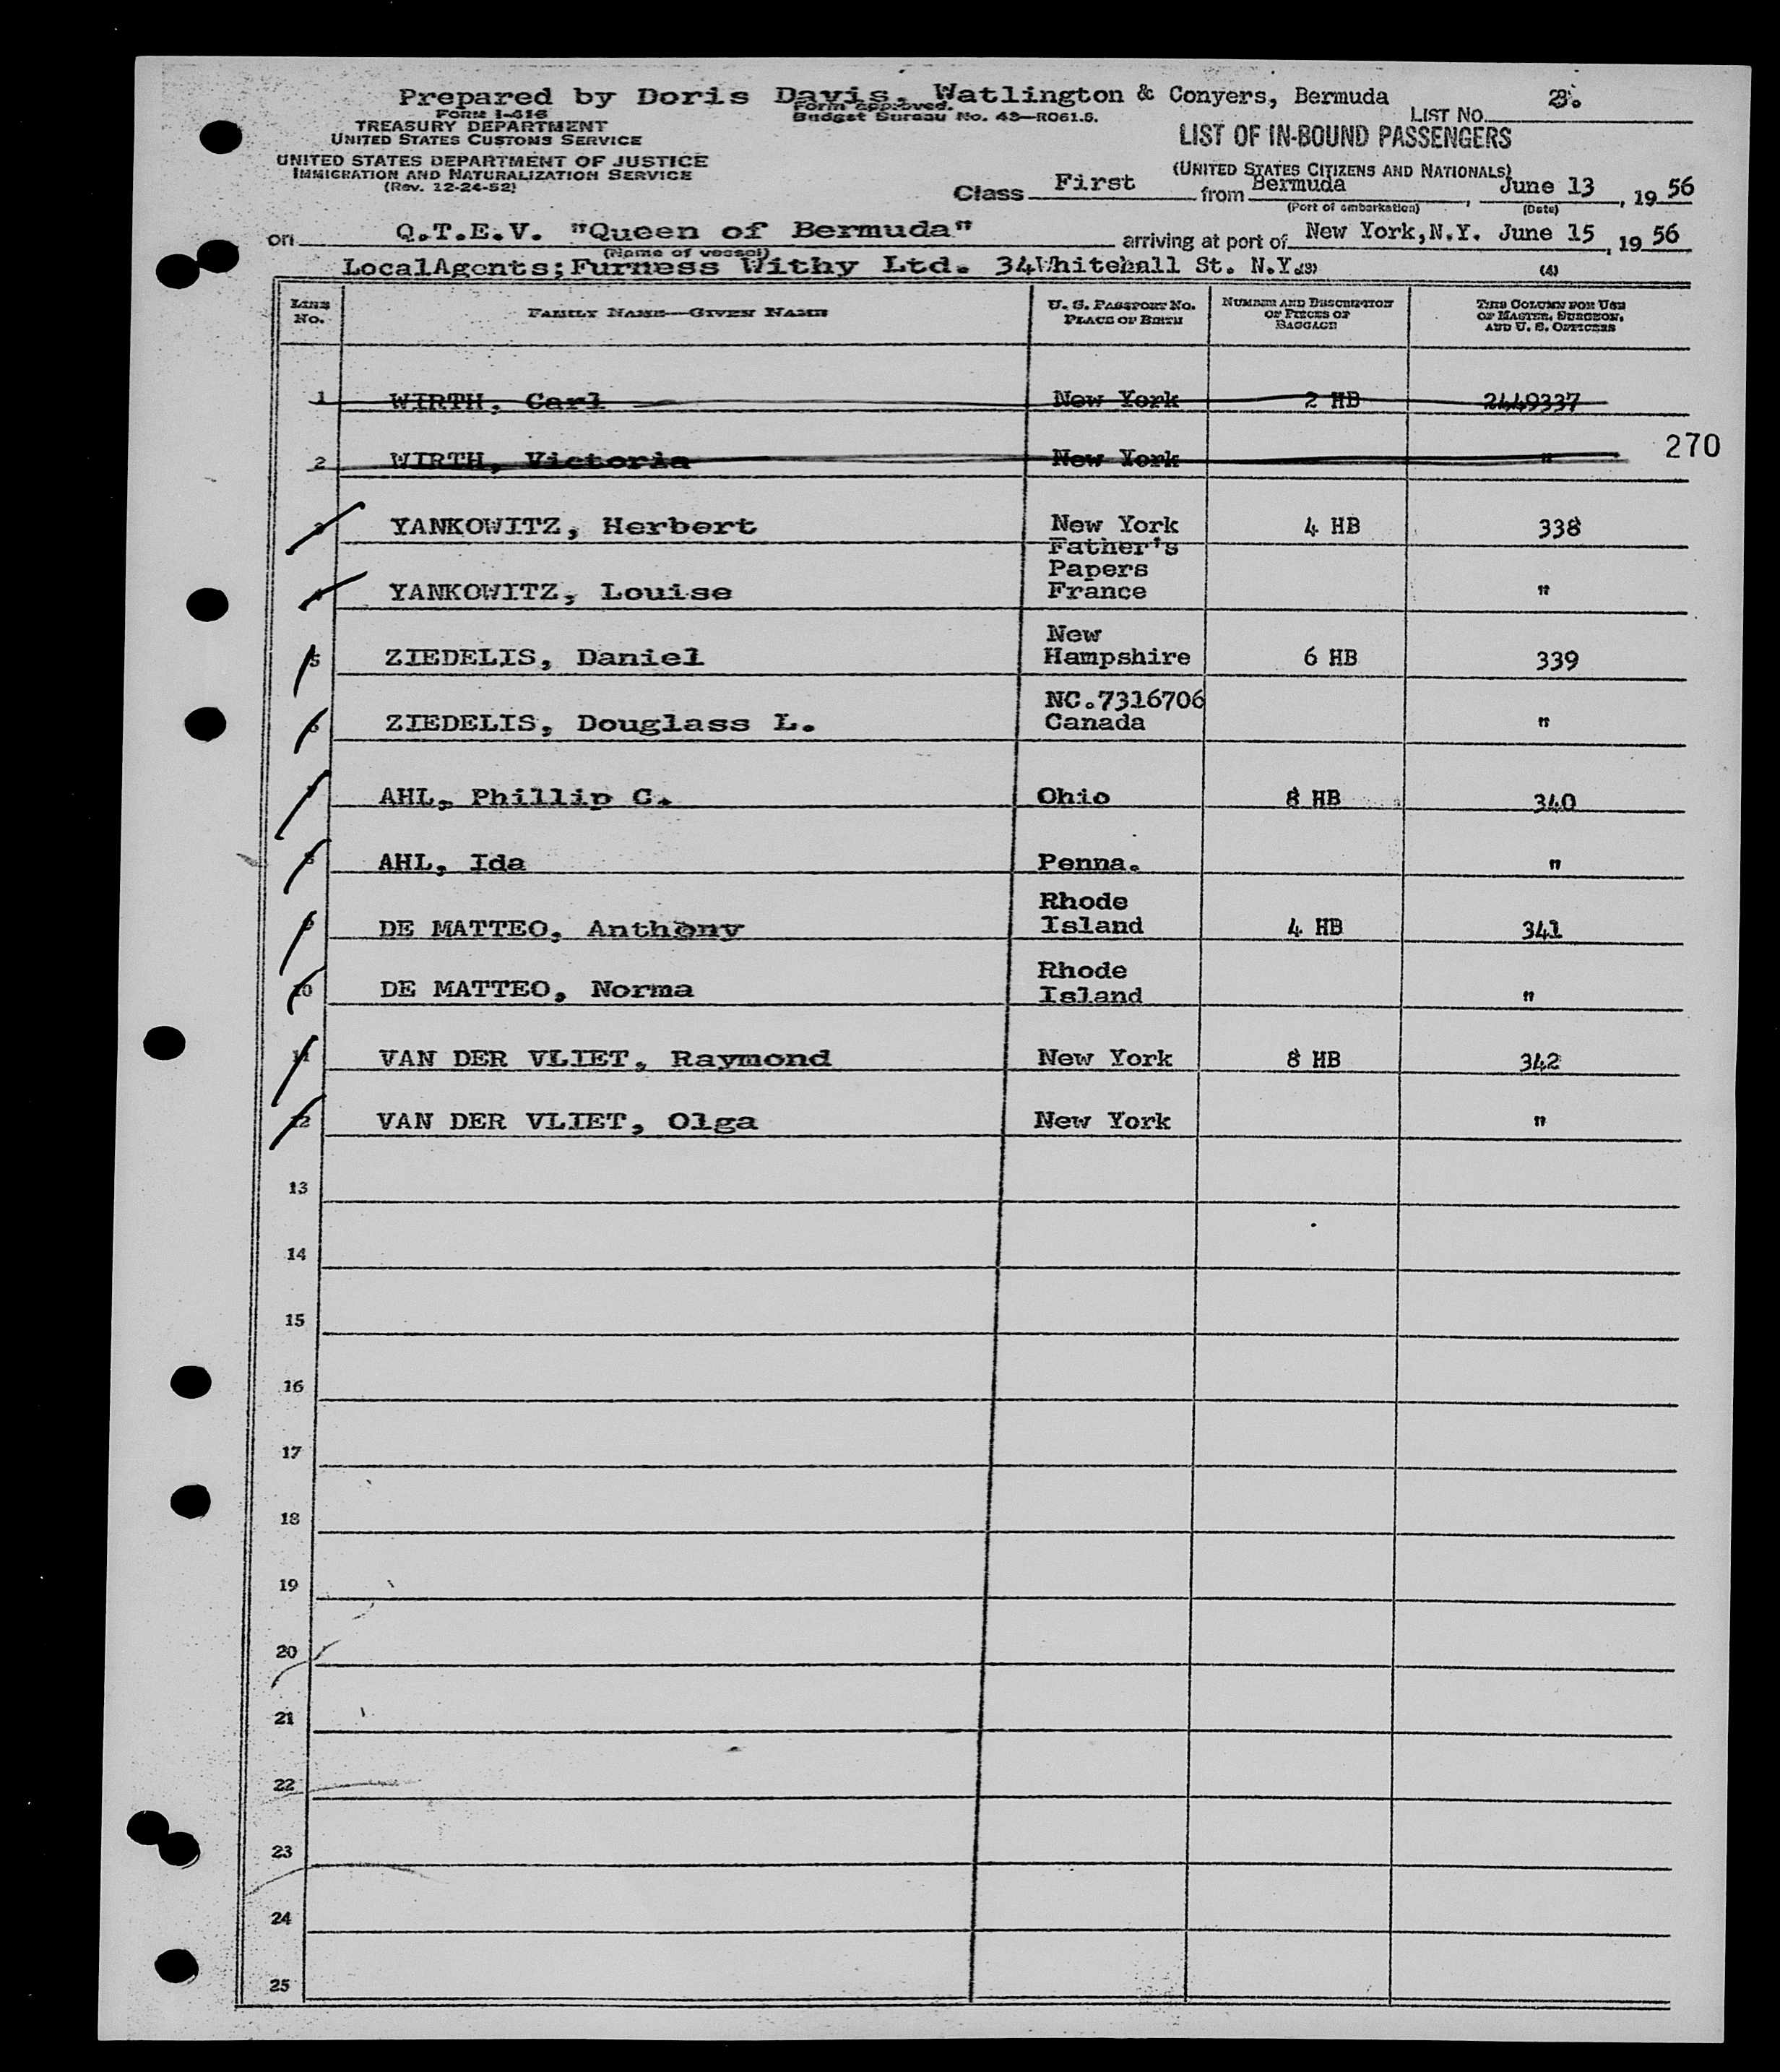 Prepared by Doris Davis, Watlington & Conyers, Bermuda
Form I-418
Form approved.
Budget Bureau No. 43—RO61.5.
LIST No.
TREASURY DEPARTMENT
UNITED STATES CUSTOMS SERVICE
LIST OF IN-BOUND PASSENGERS
UNITED STATES DEPARTMENT OF JUSTICE
IMMIGRATION AND NATURALIZATION SERVICE
(Rev. 12-24-52)
(UNITED STATES CITIZENS AND NATIONALS)
Class First from Bermuda, June 13, 19 56
(Port of embarkation) (Date)
on Q.T.E.V. "Queen of Bermuda" arriving at port of New York, N.Y. June 15, 19 56
(Name of vessel)
LocalAgents; Furness Withy Ltd. 34Whitehall St. N.Y. (3) (4)
LINE No. FAMILY NAME—GIVEN NAME U. S. PASSPORT NO. PLACE OF BIRTH NUMBER AND DESCRIPTION OF PIECES OF BAGGAGE THIS COLUMN FOR USE OF MASTER, SURGEON, AND U. S. OFFICERS
1 WIRTH, Carl New York 2 HB 2449337
270
2 WIRTH, Victoria New York "
3 YANKOWITZ, Herbert New York 4 HB 338
Father's
Papers
4 YANKOWITZ, Louise France "
New
5 ZIEDELIS, Daniel Hampshire 6 HB 339
NC.7316706
6 ZIEDELIS, Douglass L. Canada "
7 AHL, Phillip C. Ohio 8 HB 340
8 AHL, Ida Penna. "
Rhode
9 DE MATTEO, Anthony Island 4 HB 341
Rhode
10 DE MATTEO, Norma Island "
11 VAN DER VLIET, Raymond New York 8 HB 342
12 VAN DER VLIET, Olga New York "
13
14
15
16
17
18
19
20
21
22
23
24
25